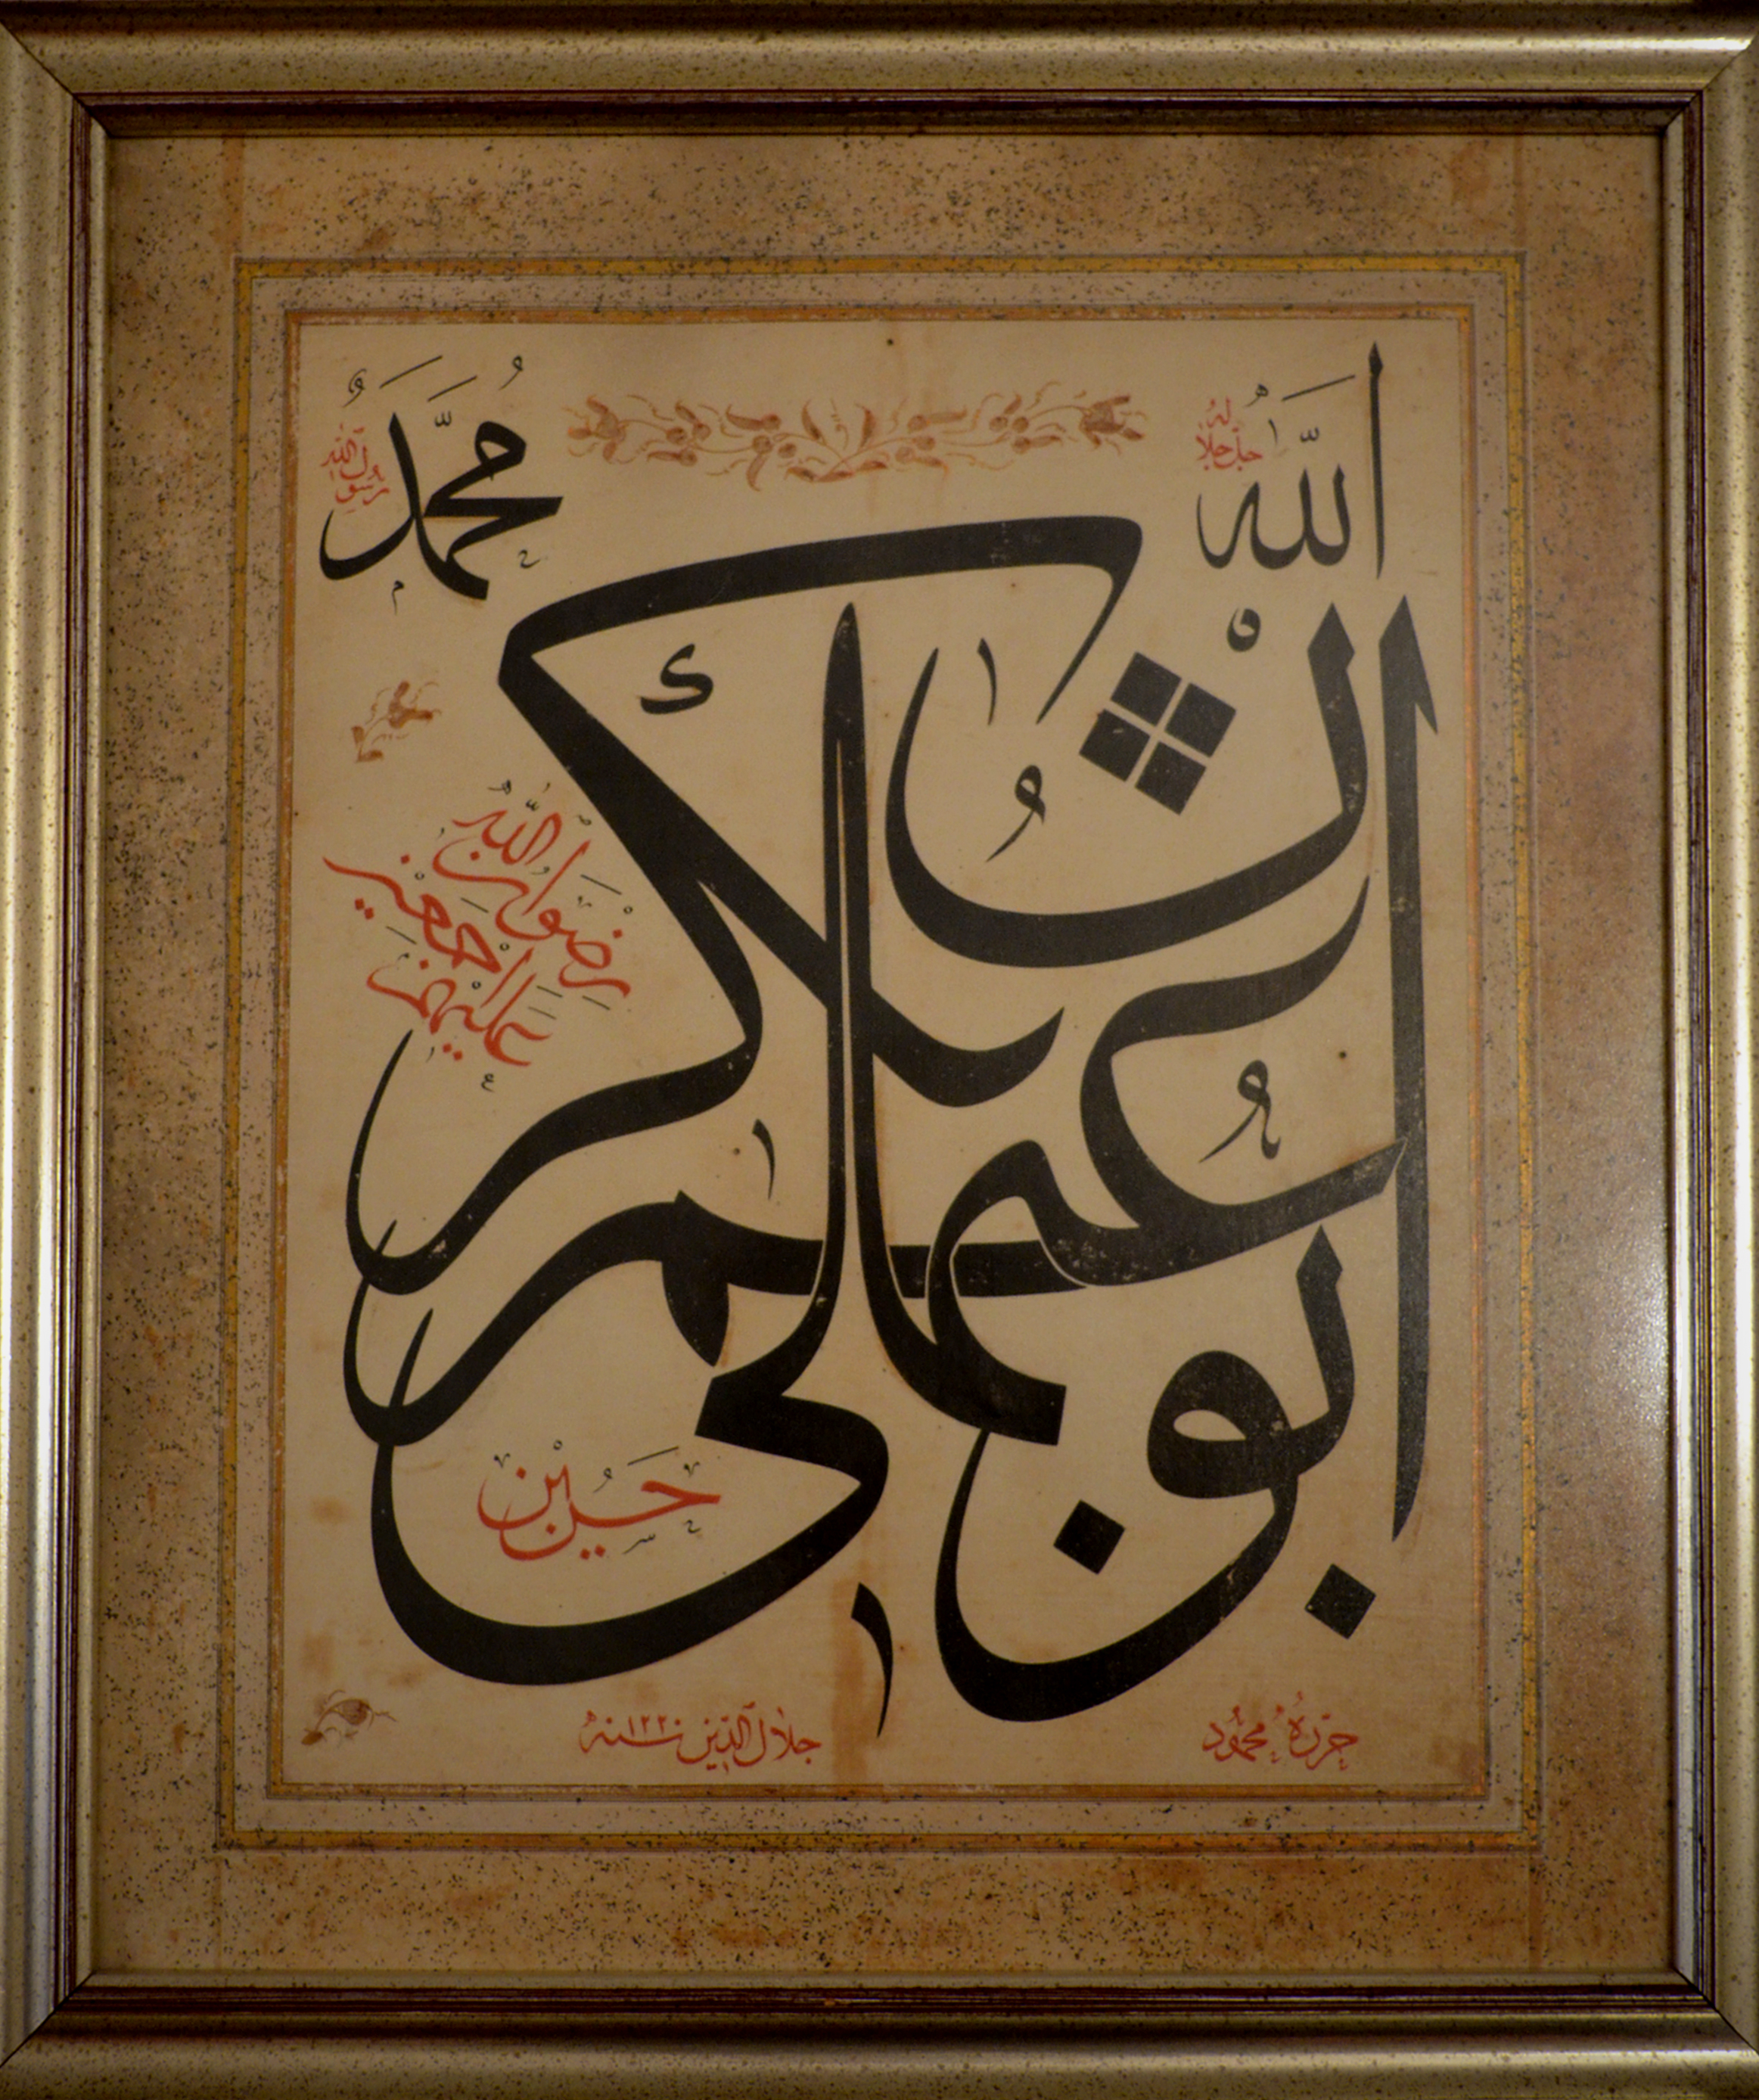 الله جل جلاله
محمد رسول الله
ابو بكر
عمر
عثمان
على
رضوان الله
عليهم اجمعين
حسين
حرره محمود جلال الدين سنه ١٢٢٠